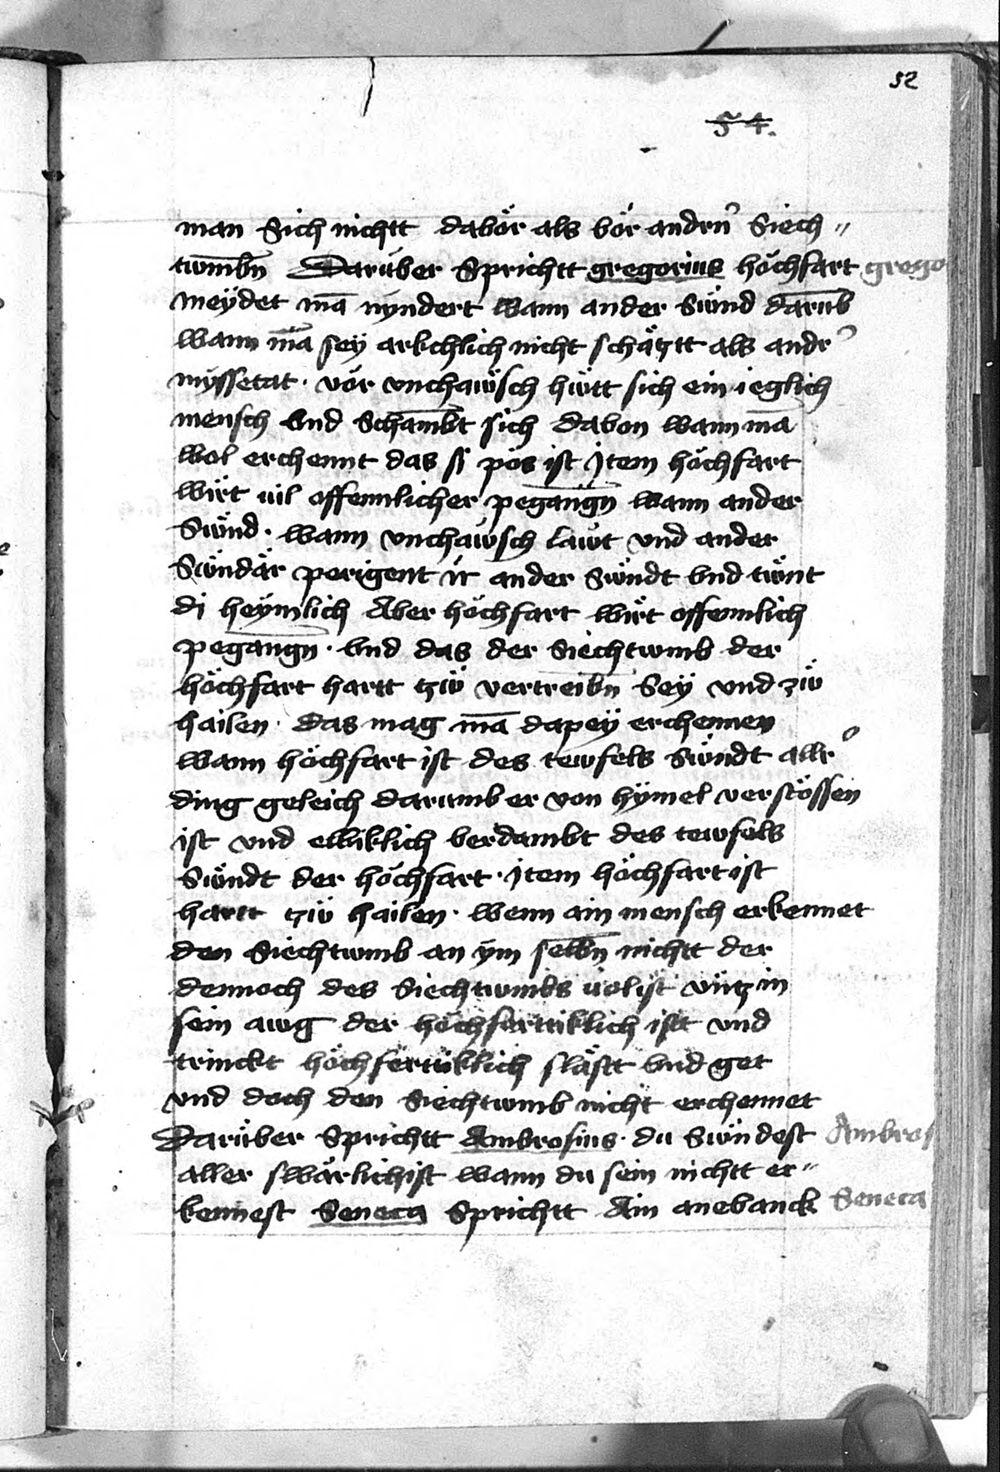 52
54.
man sich nichtt davör als vör andrn̄ siech„
twmbn̄ Darüber sprichtt gregorius höchfart grego
meÿdet mā nÿndert wann ander sünd darub̄
wann mā seÿ arkchlich nicht schätztt als andr̓
mÿssetat · vör vnchawsch hütt sich ein ieglich
mensch vnd schambt sich davon wann mā
wol erchennt das si pös ist Jtem höchfart
wirt vil offennlicher pegangn̄ wann ander
Sünd · wann vnchawsch lawt vnd ander
Sündär perigent ir ander sündt vnd tünt
di heÿmlich Aber höchfart wirt offennlich
pegangn̄ · vnd das der siechtwmb der
höchfart hartt tzw vertreibn̄ seÿ vnd zw
hailen · das mag mā dapeÿ erchennen
wann höchfart ist des tewfels sündt allr̓
ding geleich darumb er von hÿmel verstössen
ist vnd ebiklich verdambt des tewfels
Sündt der höchfart · Jtem höchfart ist
hartt tzw hailen · wenn ain mensch erkennet
den siechtwmb an ÿm selbn̄ nichtt der
dennoch des siechtwmbs vol ist vntz in
sein awg der höchferttiklich isst vnd
trinckt höchfertiklich släfft vnd get
vnd doch den siechtwmb nicht erchennet
Darüber sprichtt Ambrosius · du sündest Ambros
aller swärlichist wann du sein nichtt er„
kennest Seneca sprichtt Ain anevanck Seneca